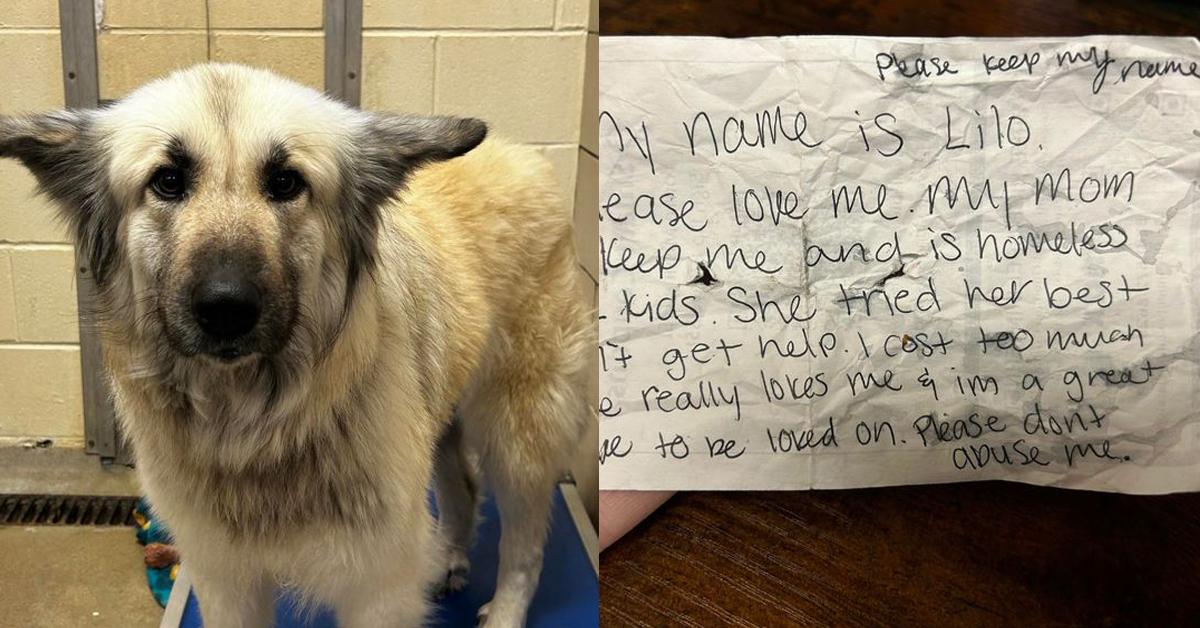 Please keep my name
My name is Lilo.
ease love me. My Mom
keep me and is homeless
kids. She tried her best
n't get help. I cost too much
e really loves me & im a great
to be loved on. Please dont
abuse me.